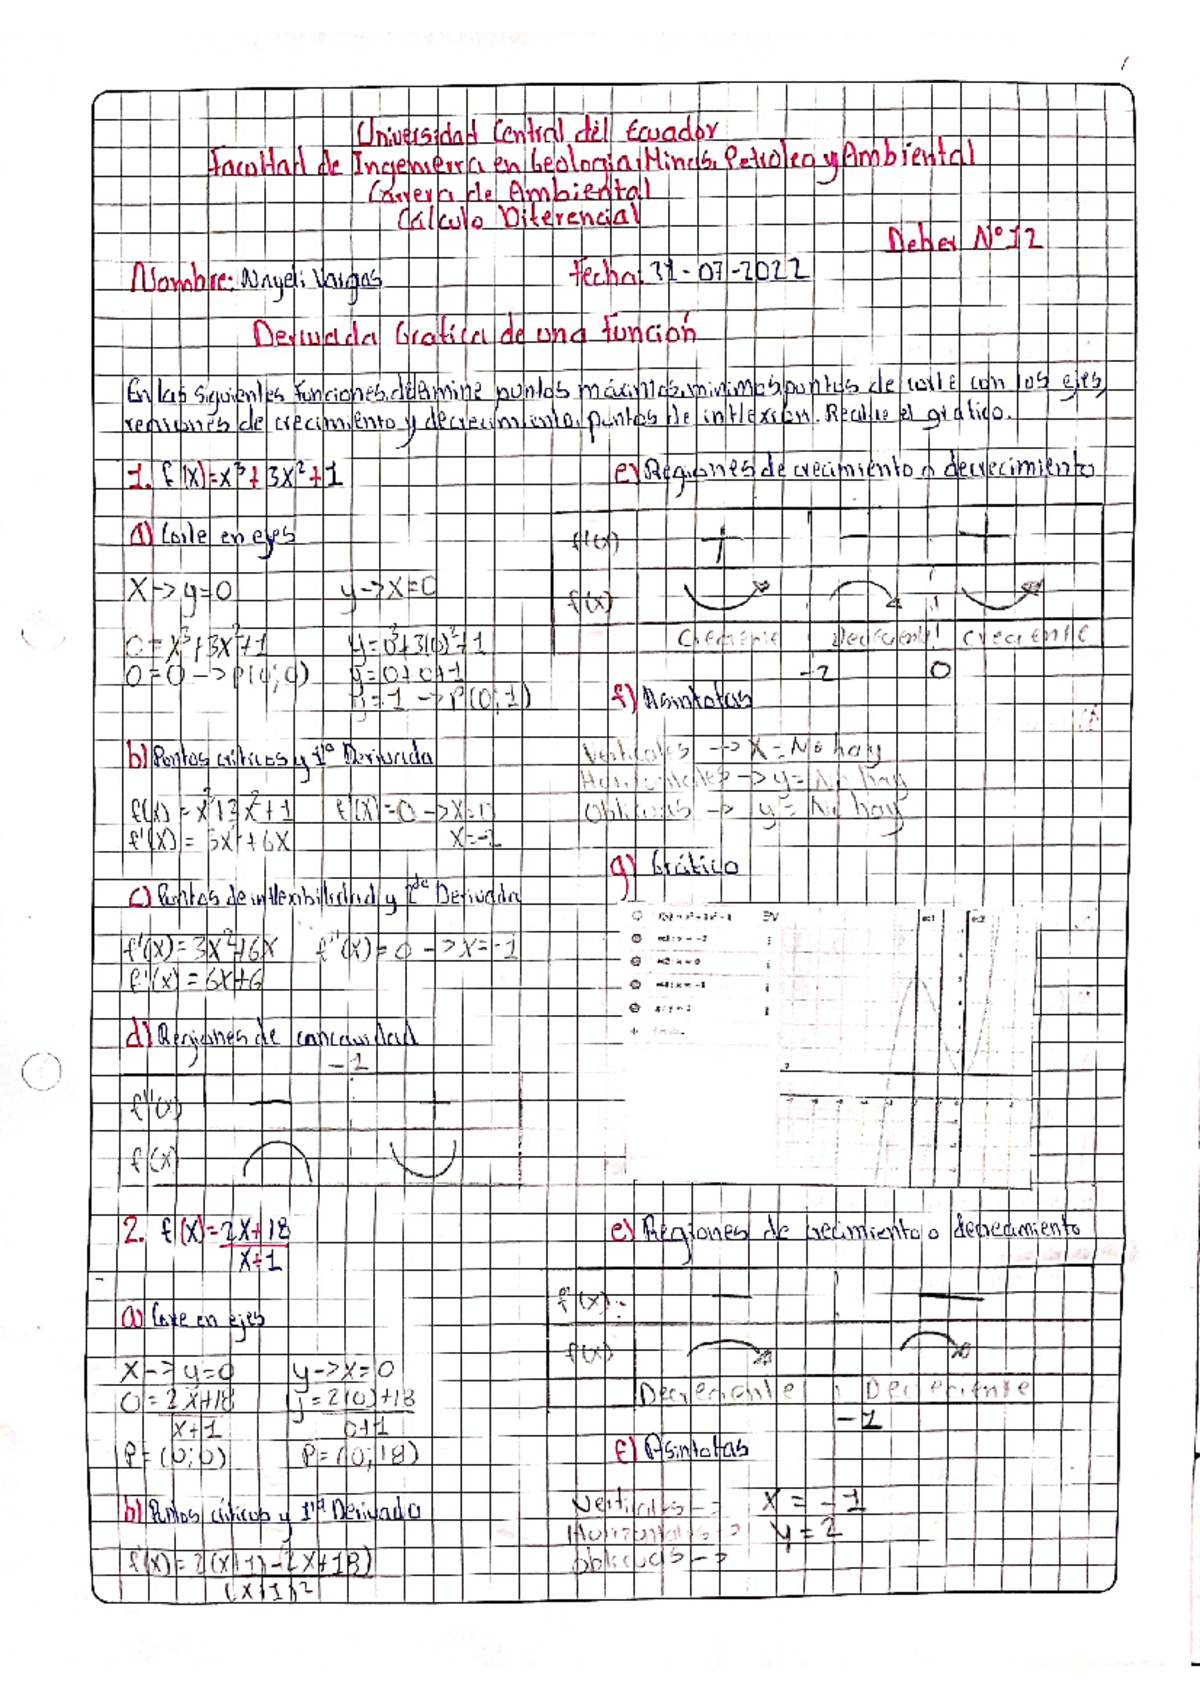 Universidad Central del Ecuador
Facultad de Ingenierra en Geologia, Minas, Petroleo y Ambiental
Carrera de Ambiental
Cálculo Diferencial
Deber N°12
Nombre: Nayeli Vargas
Fecha: 31-07-2022
Derivada Grafica de una función
En las siguientes funciones, determine puntos máximos, minimos, puntos de corte con los ejes,
regiones de crecimiento y decrecimiento, puntos de inflexión. Realice el gráfico.
1. f(x)=x³+3x²+1
a) Corte en ejes
x->y=0
y->x=0
0=x³+3x²+1
y=0³+3(0)²+1
0=0->P(0;0)
y=0+0+1
y=1->P(0;1)
b) Puntos críticos y 1ra Derivada
f'(x)=0->x=0
f'(x)=3x²+6x
x=-2
c) Puntos de inflexibilidad y 2da Derivada
f'(x)=3x²+6x
f''(x)=0->x=-1
f''(x)=6x+6
d) Regiones de concavidad
-1
f''(x) - +
f(x)
e) Regiones de crecimiento o decrecimiento
f'(x) + - +
f(x)
Creciente Decreciente Creciente
-2 0
f) Asintotas
Verticales -> x=No hay
Horizontales -> y=No hay
Oblicuas -> y=No hay
g) Gráfico
2. f(x)=2x+18
x+1
a) Corte en ejes
x->y=0
y->x=0
0=2x+18
x+1
y=2(0)+18
0+1
P=(0;0)
P=(0;18)
b) Puntos críticos y 1ra Derivada
f'(x)=2(x+1)-2x+18)
(x+1)²
e) Regiones de crecimiento o decrecimiento
f'(x) - -
f(x)
Decreciente Decreciente
-1
f) Asintotas
Verticales -> x=-1
Horizontales -> y=2
Oblicuas ->